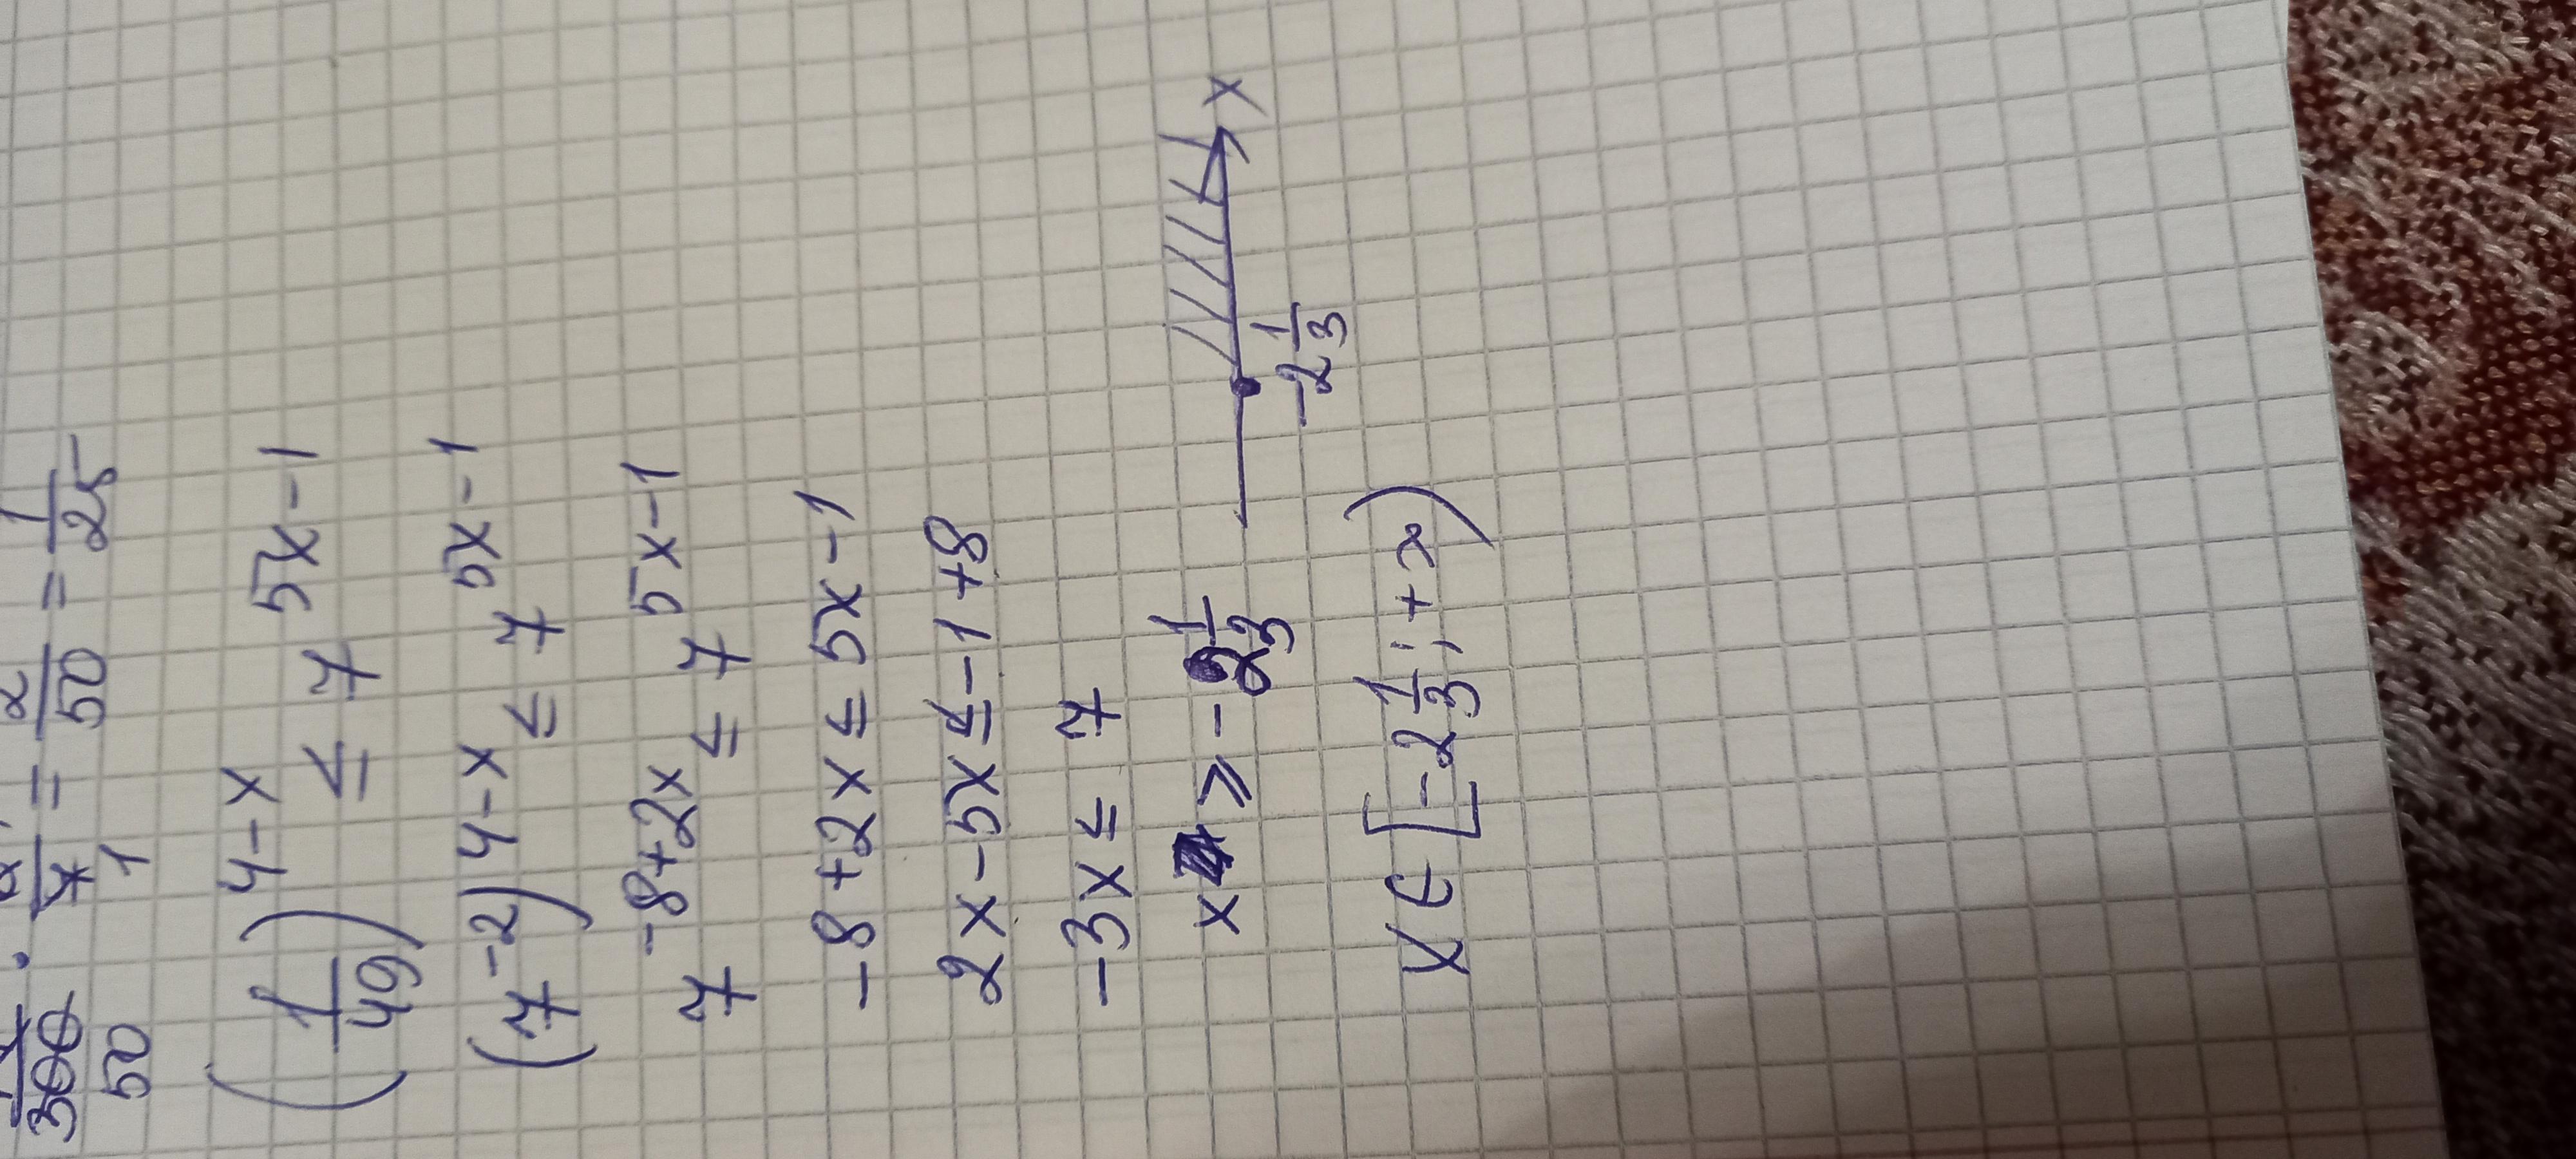 300 · 4 = 2/50 = 1/25
50 1
(1/49)^(4-x) ≤ 7^(5x-1)
(7^(-2))^(4-x) ≤ 7^(5x-1)
7^(-8+2x) ≤ 7^(5x-1)
-8+2x ≤ 5x-1
2x-5x ≤ -1+8
-3x ≤ 7
x ⩾ -2 1/3
x
-2 1/3
x ∈ [-2 1/3; +∞)